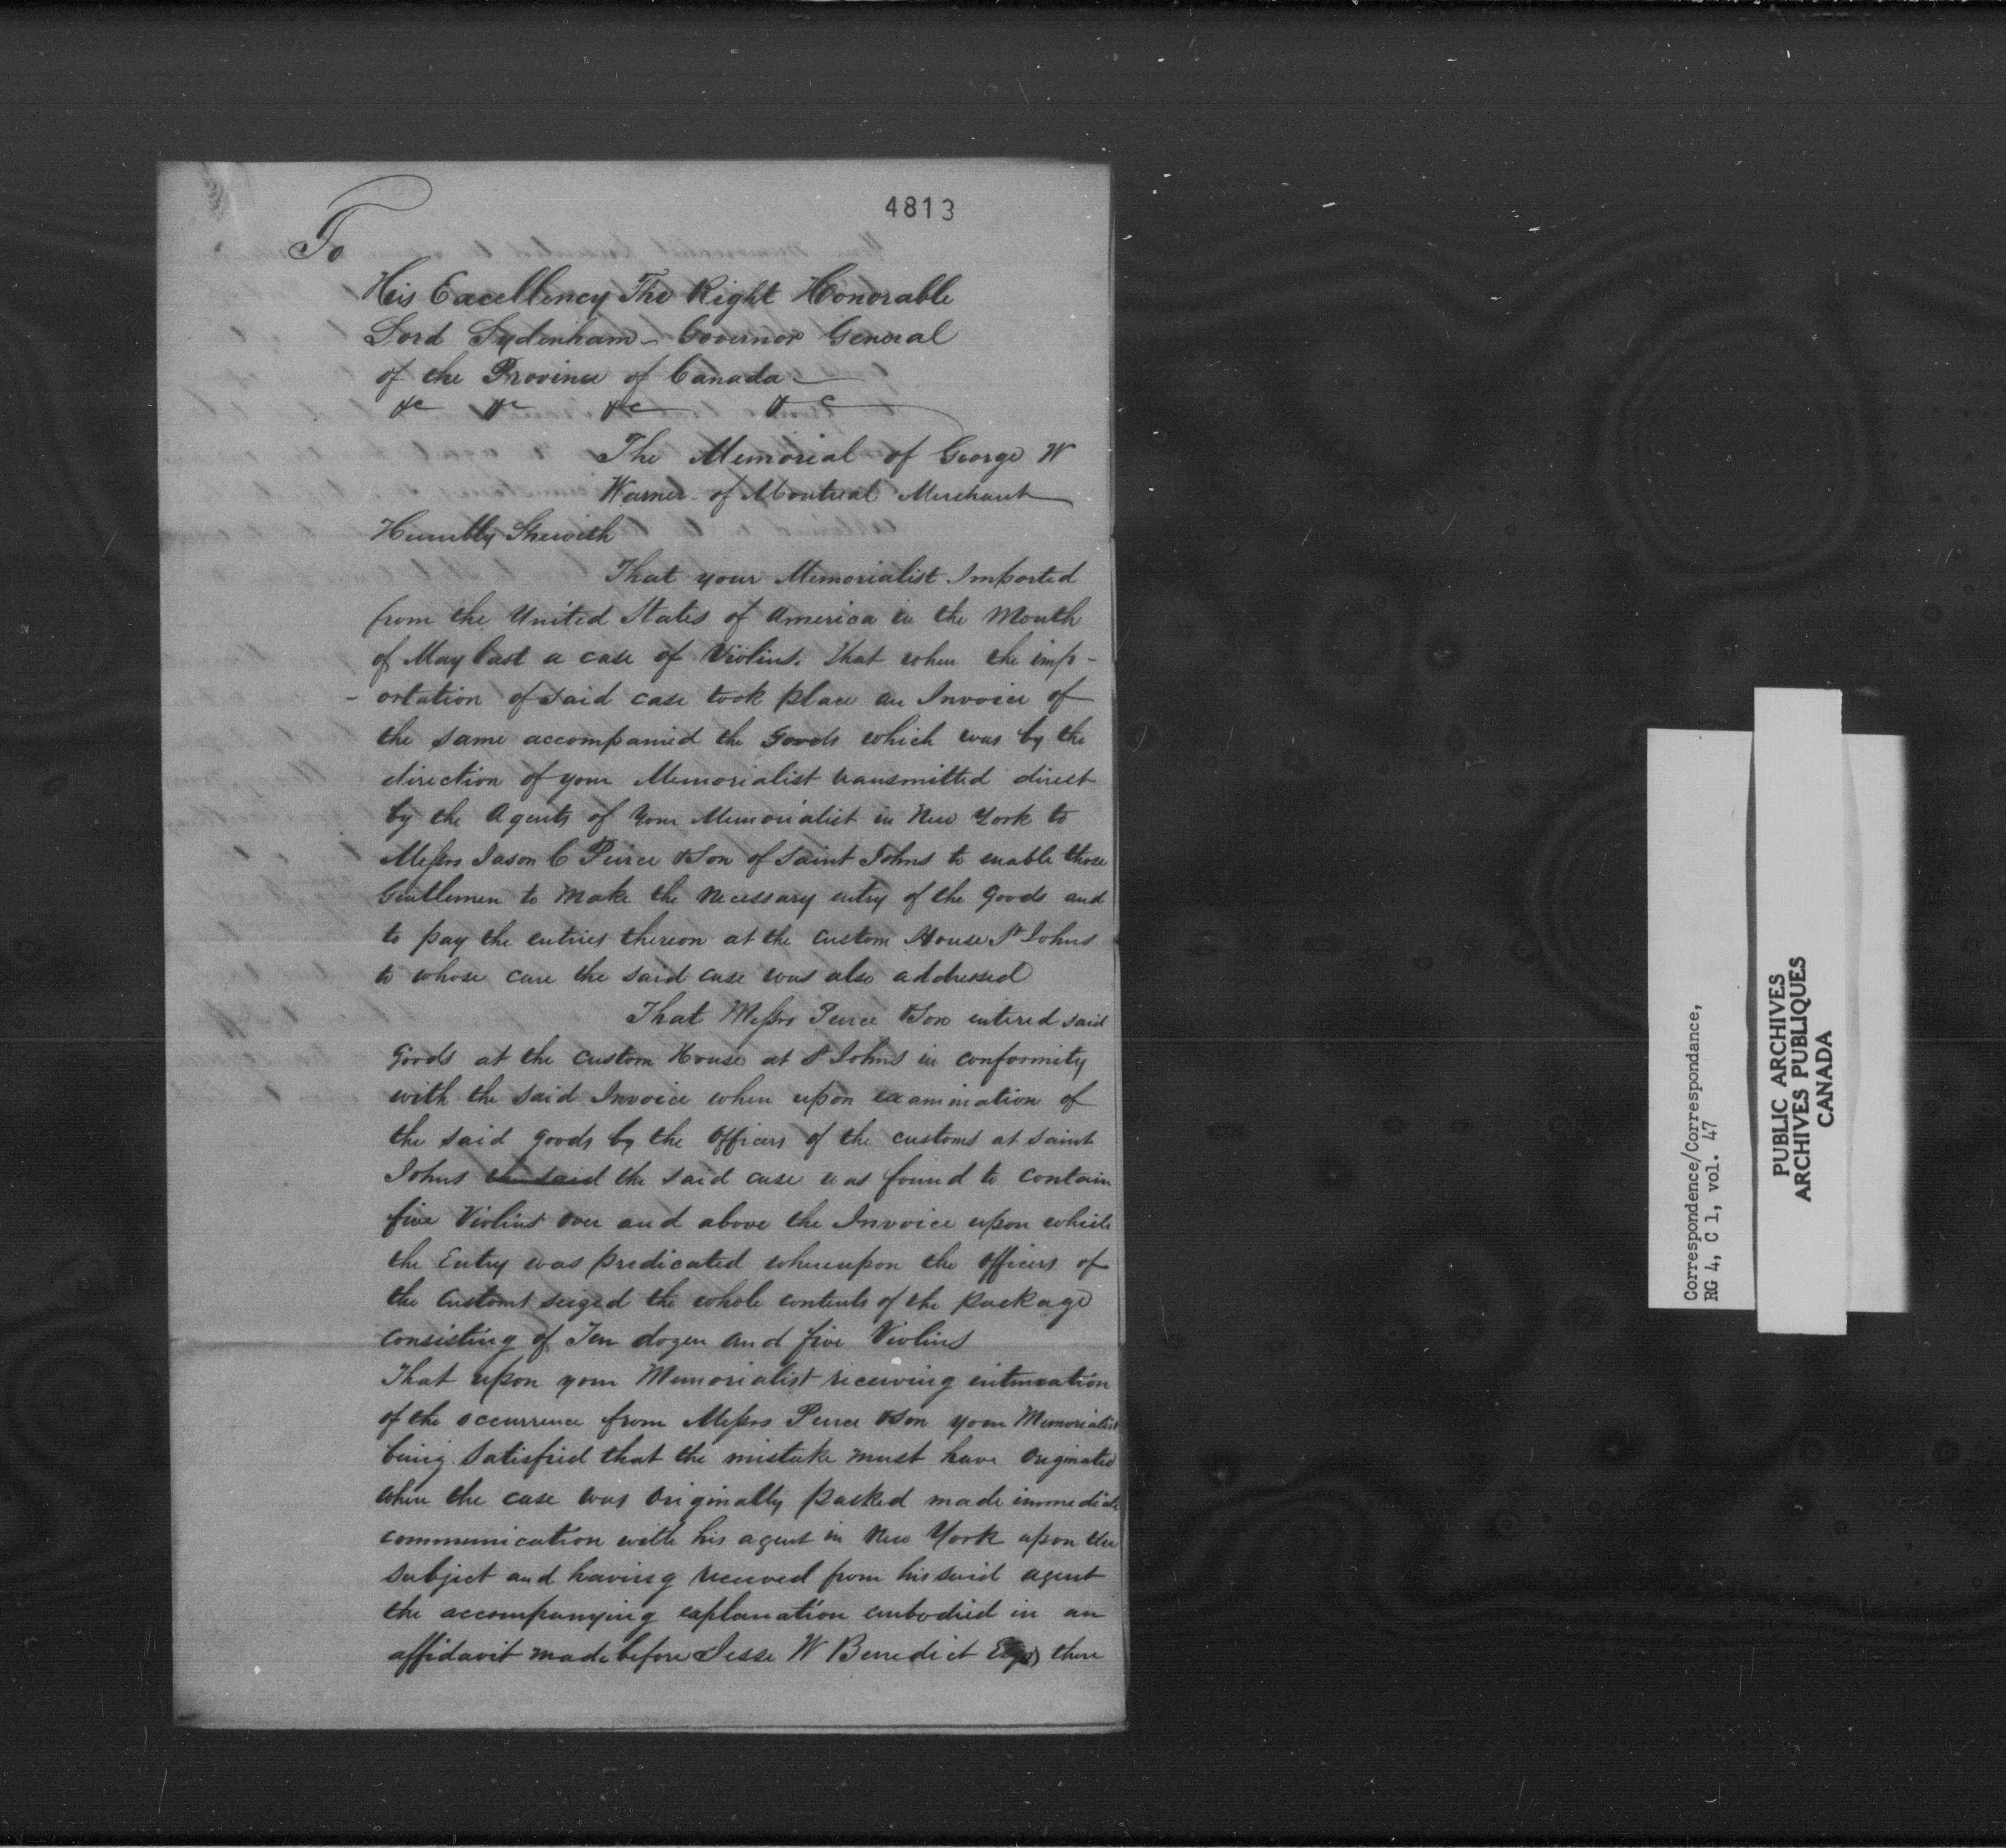 4813
To
His Excellency The Right Honorable
Lord Sydenham - Governor General
of the Province of Canada
&c &c &c &c
The Memorial of George W
Warner of Montreal Merchant
Humbly Sheweth
That your Memorialist Imported
from the United States of America in the Month
of May last a case of Violins. That when the imp-
-ortation of said case took place an Invoice of
the same accompanied the Goods which was by the
direction of your Memorialist transmitted direct
by the Agents of your Memorialist in New York to
Messrs Jason C Peirce & Son of Saint Johns to enable those
Gentlemen to make the necessary entry of the goods and
to pay the entries thereon at the Custom House St Johns
to whose care the said case was also addressed
That Messrs Peirce & Son entered said
Goods at the Custom House at St Johns in conformity
with the said Invoice when upon examination of
the said goods by the Officers of the customs at Saint
Johns the said the said case was found to contain
five Violins over and above the Invoice upon which
the Entry was predicated whereupon the officers of
the Customs seized the whole contents of the package
consisting of Ten dozen and five Violins
That upon your Memorialist receiving intimation
of the occurrence from Messrs Peirce & Son your Memorialist
being satisfied that the mistake must have originated
when the case was originally packed made immediate
communication with his agent in New York upon the
subject and having received from his said agent
the accompanying explanation embodied in an
affidavit made before Jesse W Benedict Esqr there
Correspondence/Correspondance,
RG 4, C 1, vol. 47
PUBLIC ARCHIVES
ARCHIVES PUBLIQUES
CANADA